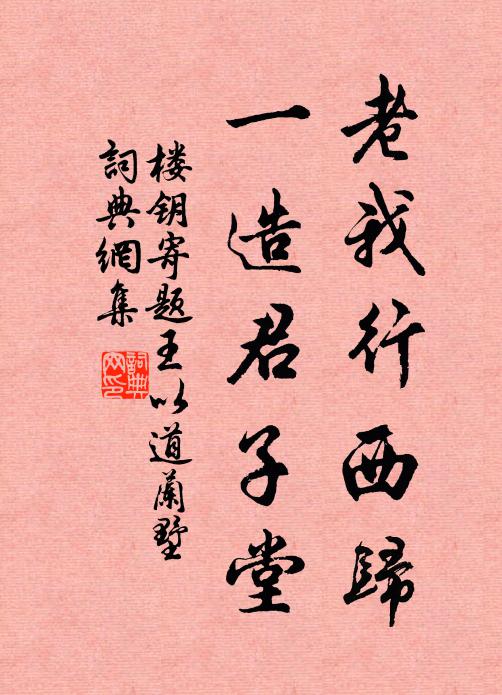 老我行西歸
一造君子堂
楼钥寄题王以道蘭墅
詞典網集
詞典
网印